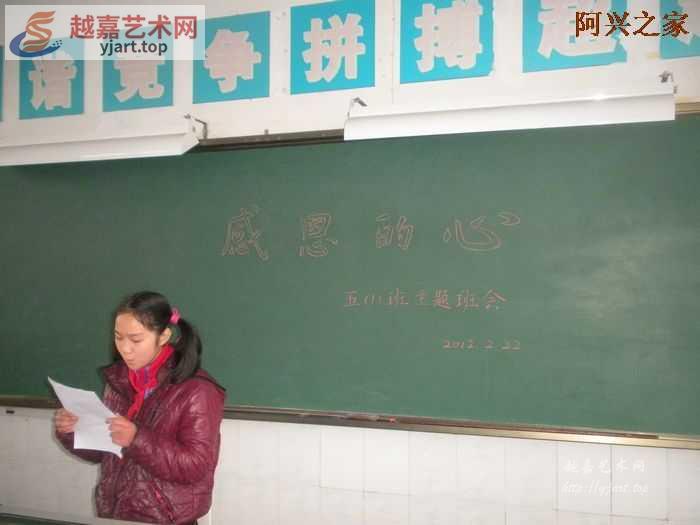 越嘉艺术网
yjart.top
阿兴之家
谐 竞 争 拼 搏 超
感恩的心
五(1)班主题班会
2012.2.22
越嘉艺术网
http://yjart.top